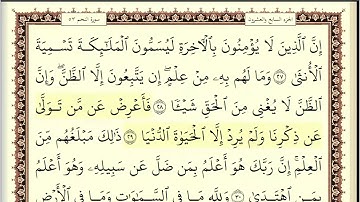 الجزء السابع والعشرون سورة النجم ٥٣
إِنَّ ٱلَّذِينَ لَا يُؤْمِنُونَ بِٱلْأَخِرَةِ لَيُسَمُّونَ ٱلْمَلَٰٓئِكَةَ تَسْمِيَةَ
ٱلْأُنثَىٰ ٢٧ وَمَا لَهُم بِهِۦ مِنْ عِلْمٍ ۖ إِن يَتَّبِعُونَ إِلَّا ٱلظَّنَّ ۖ وَإِنَّ
ٱلظَّنَّ لَا يُغْنِى مِنَ ٱلْحَقِّ شَيْـًٔا ٢٨ فَأَعْرِضْ عَن مَّن تَوَلَّىٰ
عَن ذِكْرِنَا وَلَمْ يُرِدْ إِلَّا ٱلْحَيَوٰةَ ٱلدُّنْيَا ٢٩ ذَٰلِكَ مَبْلَغُهُم مِّنَ
ٱلْعِلْمِ ۚ إِنَّ رَبَّكَ هُوَ أَعْلَمُ بِمَن ضَلَّ عَن سَبِيلِهِۦ وَهُوَ أَعْلَمُ
بِمَنِ ٱهْتَدَىٰ ٣٠ وَلِلَّهِ مَا فِى ٱلسَّمَٰوَٰتِ وَمَا فِى ٱلْأَرْضِ